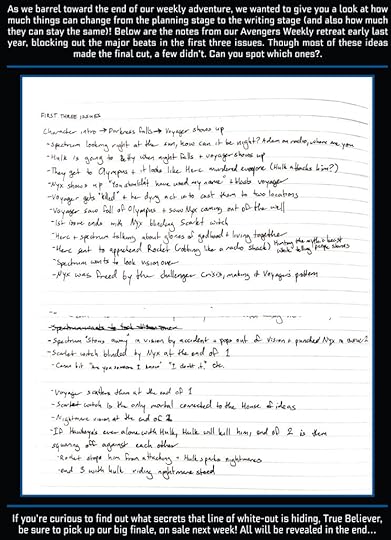 As we barrel toward the end of our weekly adventure, we wanted to give you a look at how
much things can change from the planning stage to the writing stage (and also how much
they can stay the same)! Below are the notes from our Avengers Weekly retreat early last
year, blocking out the major beats in the first three issues. Though most of these ideas
made the final cut, a few didn't. Can you spot which ones?.
FIRST THREE ISSUES
Character intro → Darkness falls → Voyager shows up
- Spectrum looking right at the sun, how can it be night? Adam on radio, where are you
- Hulk is going to Betty when night falls + voyager shows up
- They get to Olympus + it looks like Herc murdered everyone (Hulk attacks him?)
- Nyx shows up "You shouldn't have used my name" + blasts voyager
- Voyager gets "killed" + her dying act is to cast them to two locations
- Voyager saw fall of Olympus + saw Nyx coming out of the well
- 1st issue ends with Nyx blinding Scarlet Witch
- Herc + Spectrum talking about glories of godhood + living together
- Herc sent to apprehend Rocket (robbing like a radio shack) Hunting the mythic beast
while telling people stories
- Spectrum wants to look vision over
- Nyx was freed by the challenger crisis, making it Voyager's problem
- Spectrum wants to look vision over
- Spectrum stows away in vision by accident + pops out of vision + punches Nyx in
- Scarlet witch blinded by Nyx at the end of 1
- Game bit "are you someone I know" "I doubt it" etc.
- Voyager scatters them at the end of 1
- Scarlet witch is the only mortal connected to the House of ideas
- Nightmare room at the end of 2
- If Hawkeye's ever alone with Hulk, Hulk will kill him, end of 2 is them
squaring off against each other
- Rocket stops him from attacking + Hulk spots nightmares
- end 3 with hulk riding nightmare steed
If you're curious to find out what secrets that line of white-out is hiding, True Believer,
be sure to pick up our big finale, on sale next week! All will be revealed in the end...